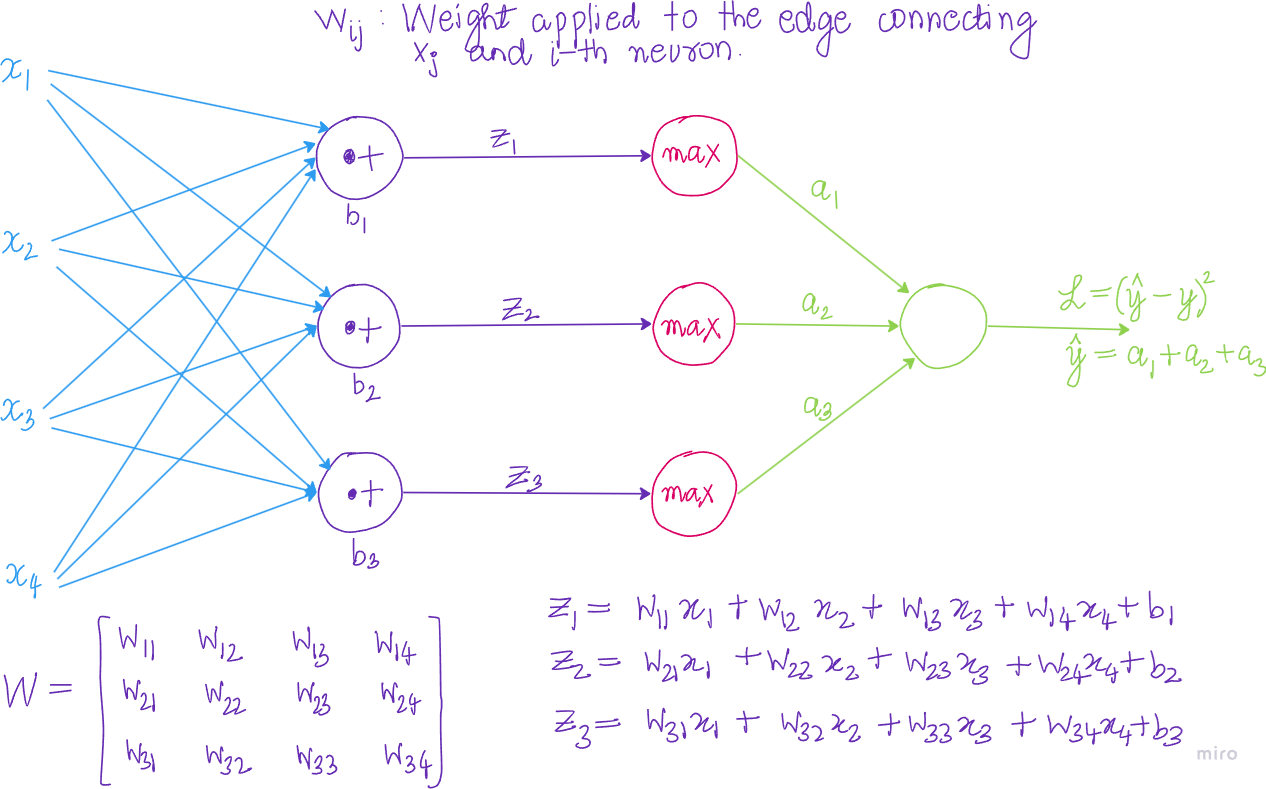 W_ij : Weight applied to the edge connecting
x_j and i-th neuron.
x₁
x₂
x₃
x₄
•+
b₁
•+
b₂
•+
b₃
z₁
z₂
z₃
max
max
max
a₁
a₂
a₃
ℒ = (ŷ − y)²
ŷ = a₁ + a₂ + a₃
W = [
W₁₁ W₁₂ W₁₃ W₁₄
W₂₁ W₂₂ W₂₃ W₂₄
W₃₁ W₃₂ W₃₃ W₃₄
]
z₁ = W₁₁x₁ + W₁₂x₂ + W₁₃x₃ + W₁₄x₄ + b₁
z₂ = W₂₁x₁ + W₂₂x₂ + W₂₃x₃ + W₂₄x₄ + b₂
z₃ = W₃₁x₁ + W₃₂x₂ + W₃₃x₃ + W₃₄x₄ + b₃
miro